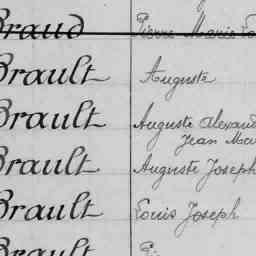 Braud Pierre Marie
Brault Auguste
Brault Auguste Alexand
Jean Mar
Brault Auguste Joseph
Brault Louis Joseph
Brault